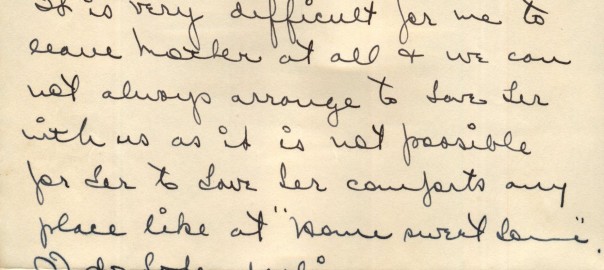 It is very difficult for me to
leave mother at all & we can
not always arrange to have her
with us as it is not possible
for her to have her comforts any
place like at "home sweet home".
I do